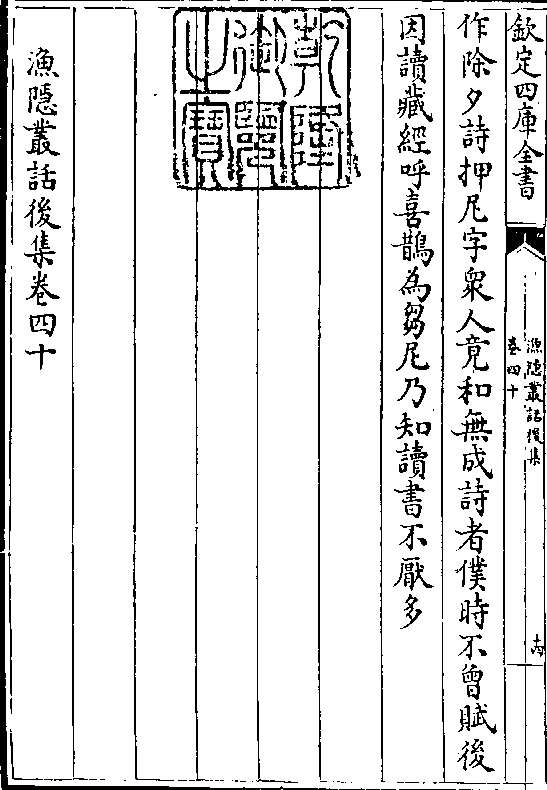 欽定四庫全書
漁隱叢話後集
卷四十
十六
作除夕詩押尼字衆人竟和無成詩者僕時不曾賦後
因讀藏經呼喜鵲為芻尼乃知讀書不厭多
乾隆
御覽
之寶
漁隱叢話後集卷四十